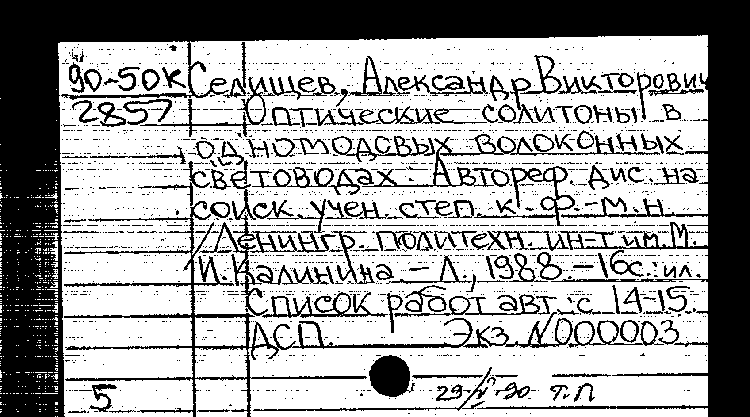 90-50К Селищев, Александр Викторович
2857 Оптические солитоны в
одномодовых волоконных
световодах : Автореф. дис. на
соиск. учен. степ. к.ф.-м.н.
/Ленингр. политехн. ин-т им. М.
И. Калинина. – Л., 1988. – 16с. : ил.
Список работ авт.: с 14-15.
ДСП. Экз. №000003
5 29/V-90 Т.П